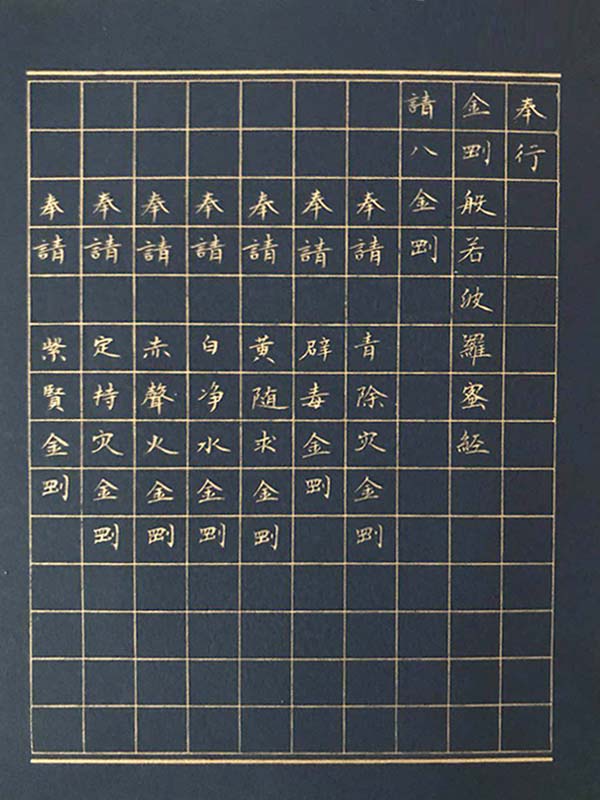 奉行
金剛般若波羅蜜經
請八金剛
奉請青除災金剛
奉請辟毒金剛
奉請黃随求金剛
奉請白净水金剛
奉請赤聲火金剛
奉請定持灾金剛
奉請紫賢金剛